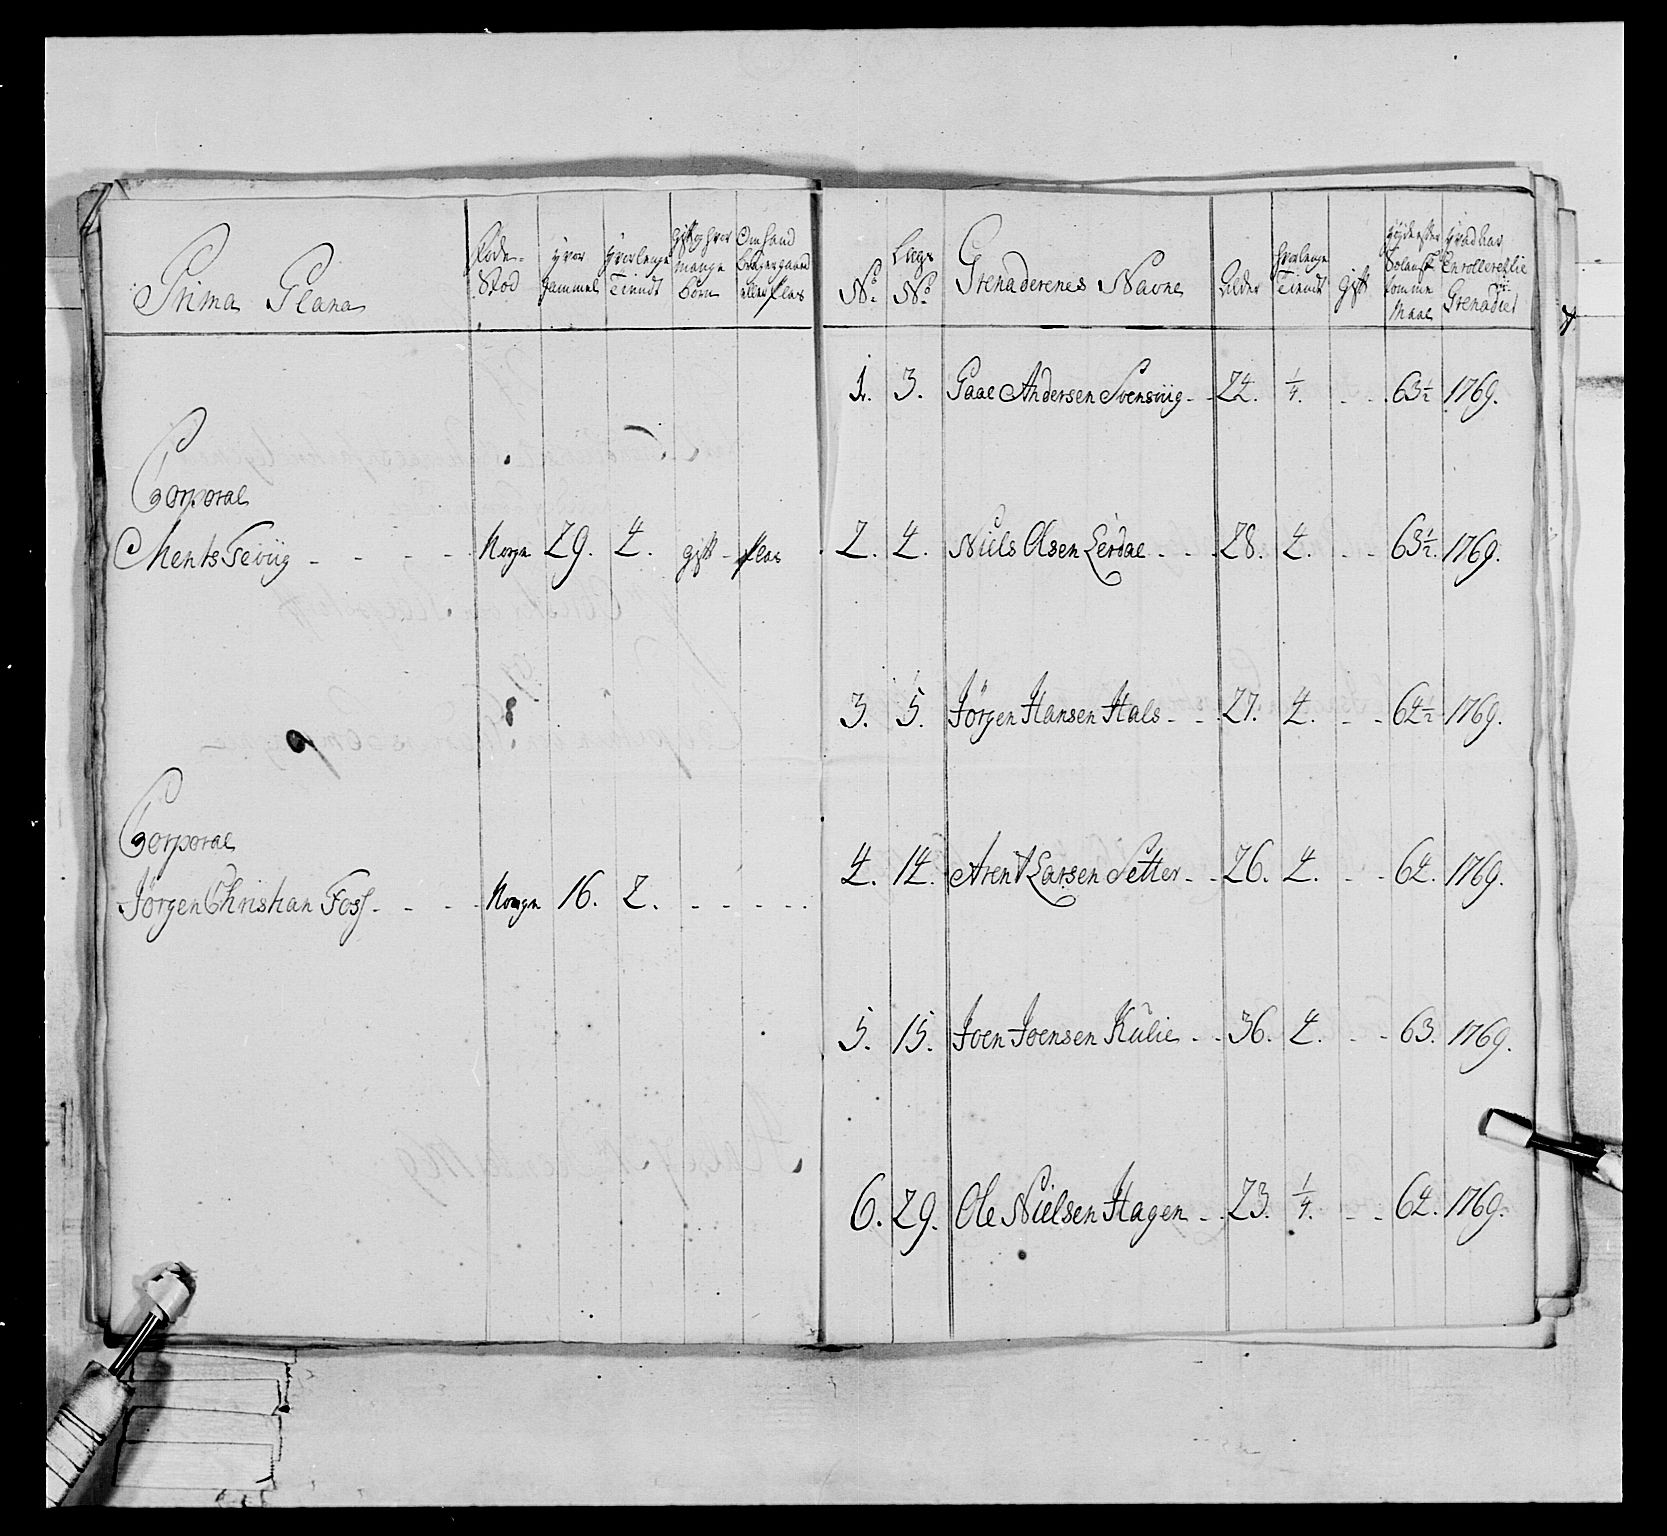 Prima Plana
Føde-
Stod
Hvor
Gammel
Hvorlenge
Tiendt
Gift og hvor
mange
børn
Om hand
bruger gaard
eller Plas
Corporal
Ments Teviig - - - - Norge 29. 4. gift - plas
Corporal
Jørgen Christian Foss - - - - Norge 16. 2. - - - - -
No.
Lægs
No.
Grenaderenes Navne
Alder
Hvorlenge
Tiendt
Gift
Høyde efter
tomme
Maal
Hvad Aar
Enrolleret
Grenadier
1. 3. Paal Andersen Svensviig - - 24. 1/4. - - 63½ 1769.
2. 4. Niels Olsen Lerdal - - - 28. 4. - - 63½. 1769.
3. 5. Jørgen Hansen Hals - - - 27. 4. - - 64½ 1769.
4. 14. Arent Larsen Setter - - 26. 4. - - 64. 1769.
5. 15. Joen Joensen Kulie - - 36. 4. - - 63. 1769.
6. 29. Ole Nielsen Hagen - - 23. 1/4. - - 64. 1769.